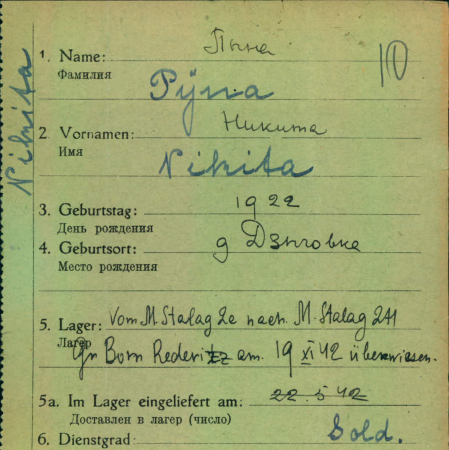 Nikita
10
Пына
1. Name:
Фамилия
Pÿna
Никита
2. Vornamen:
Имя
Nikita
3. Geburtstag: 1922
День рождения
4. Geburtsort: д Дзыговка
Место рождения
5. Lager: Vom M. Stalag 2e nach M. Stalag 2H
Лагер
Gr Born Rederitz am 19 XI 42 überwiesen.
5a. Im Lager eingeliefert am: 22.5 42
Доставлен в лагер (число)
6. Dienstgrad Sold.